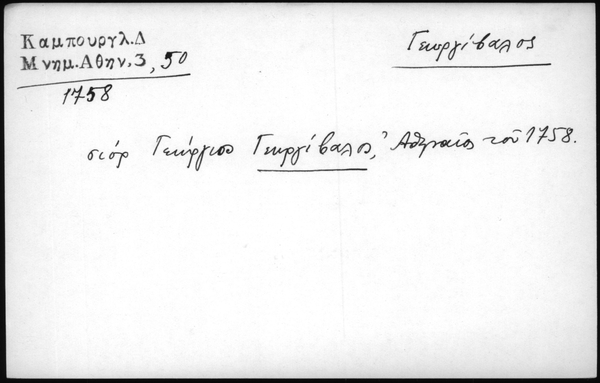 Καμπουργλ.Δ
Μνημ.Αθην.3, 50
1758
Γεωργίβαλος
σιόρ Γεώργιος Γεωργίβαλος, Ἀθηναῖος τοῦ 1758.